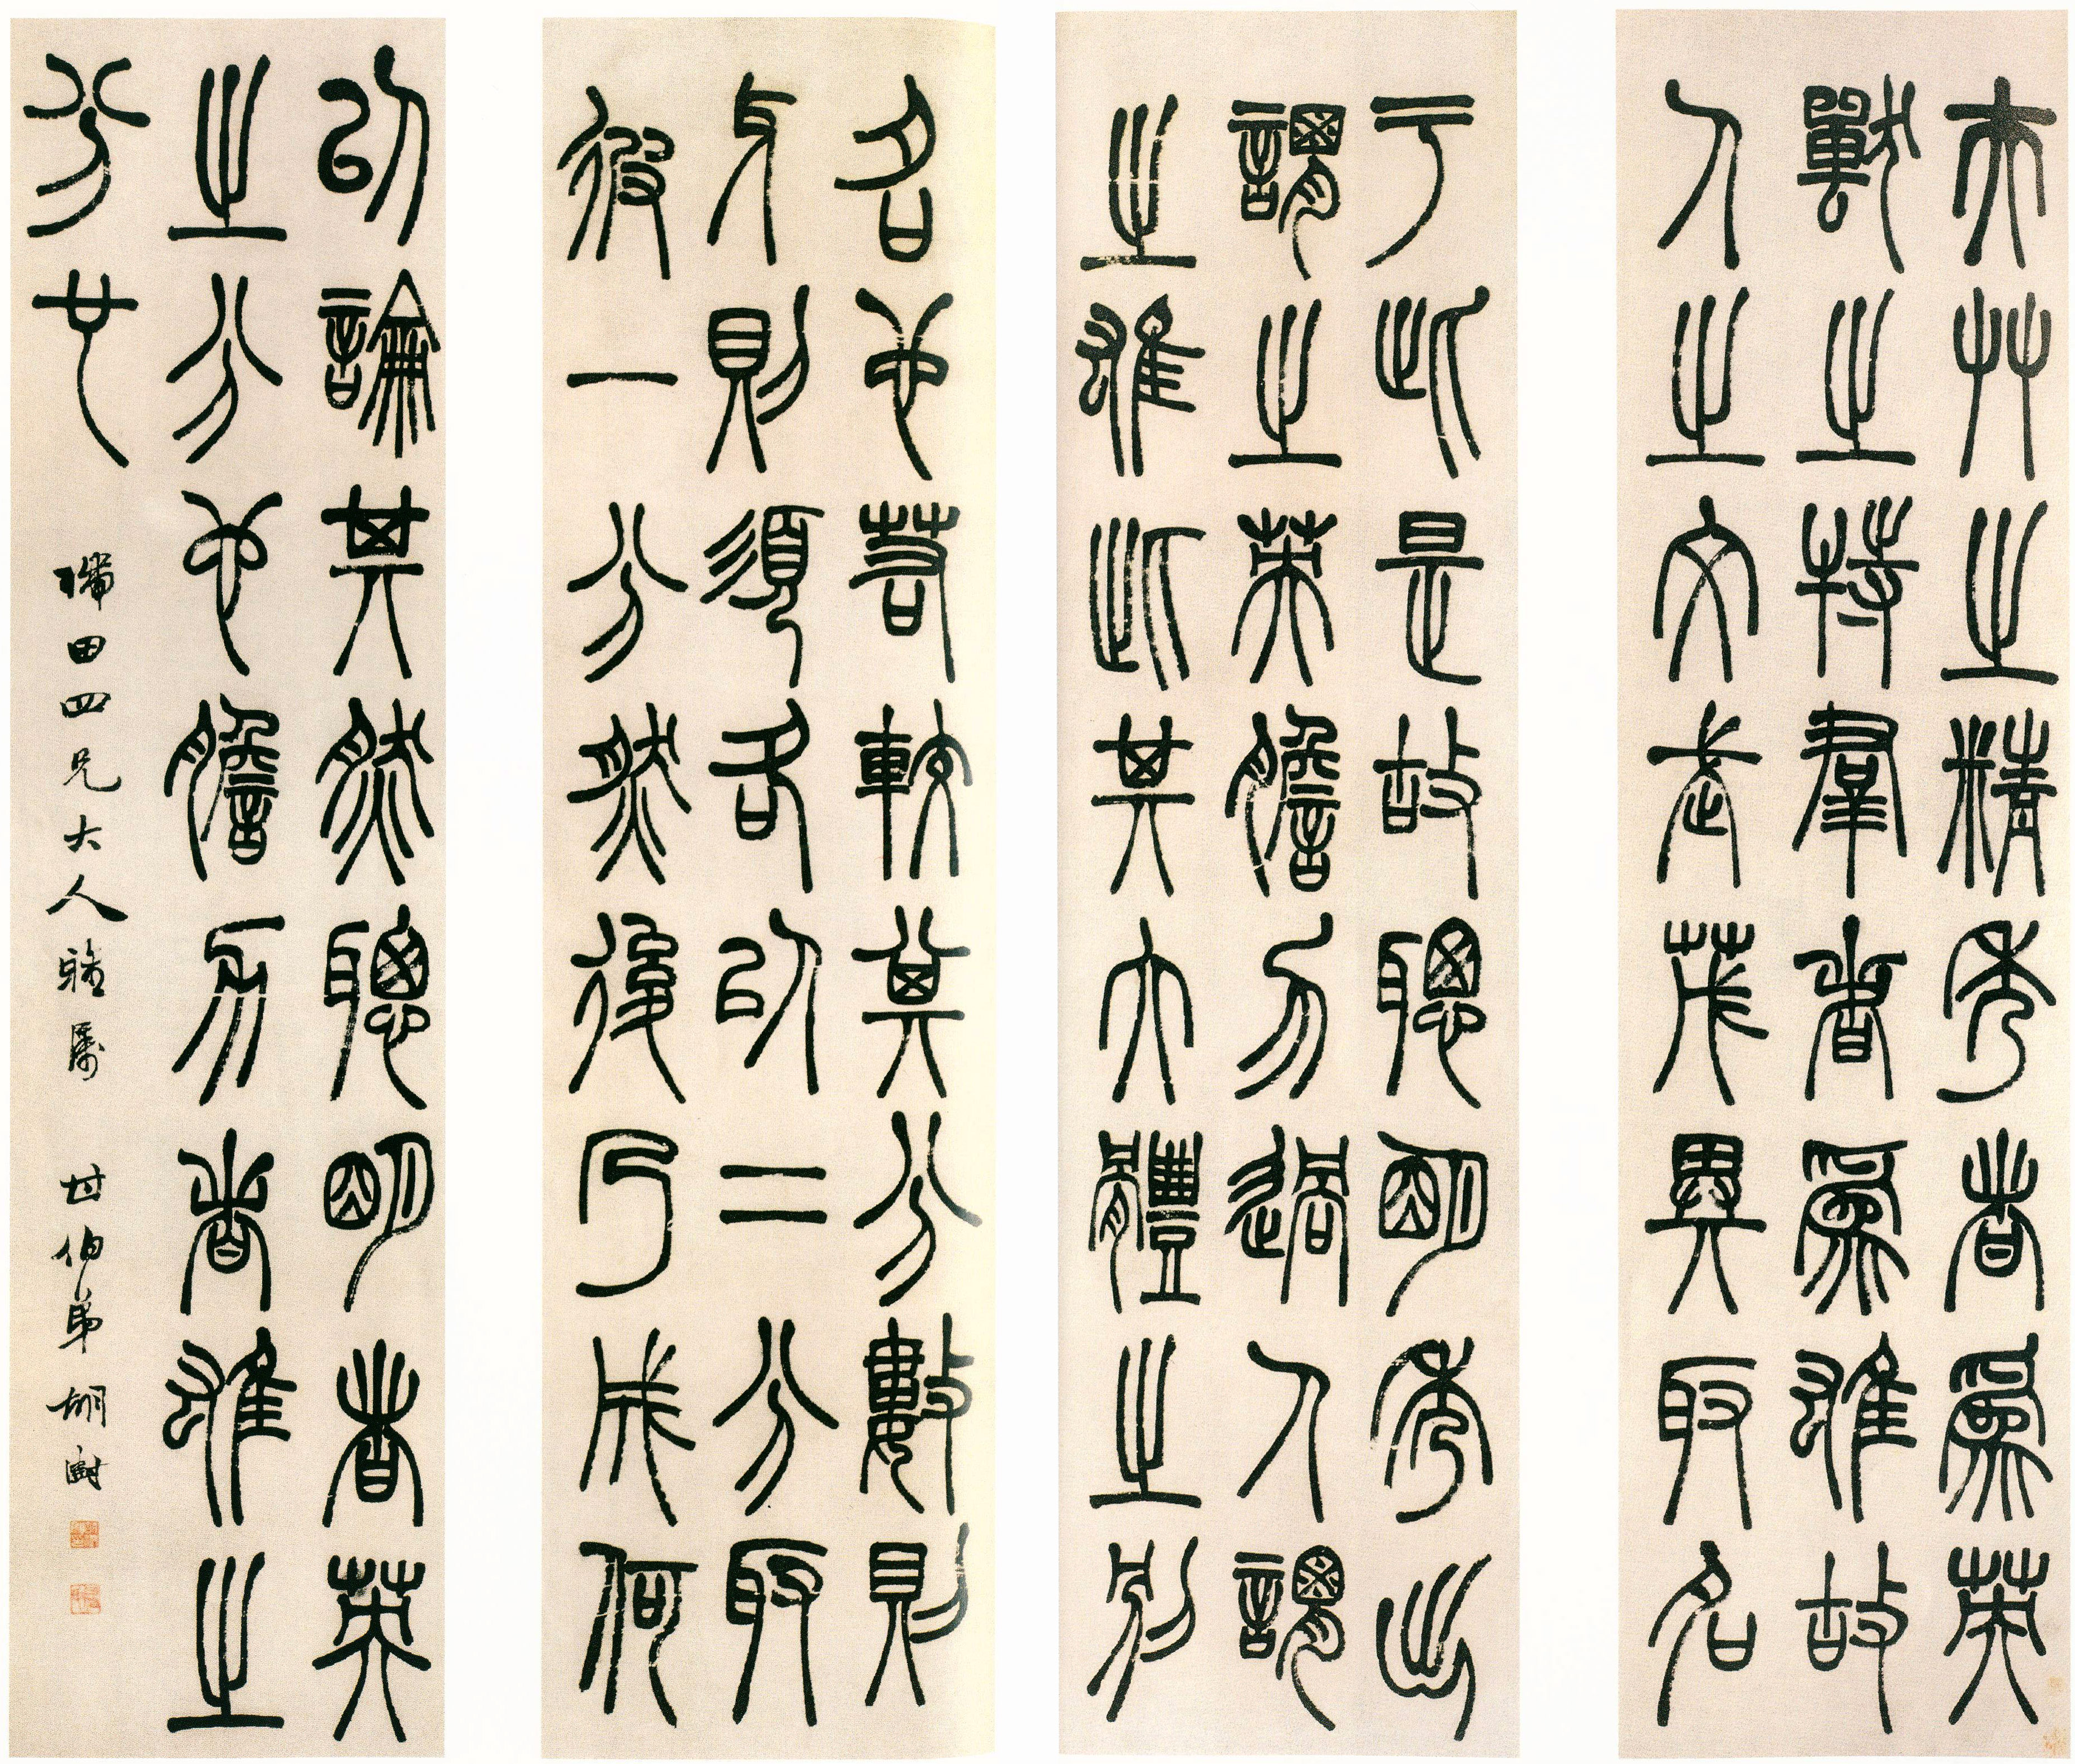 夫艸之精秀者爲英
獸之特羣者爲雄故
人之文武茂異取名
于此是故聰明秀出
謂之英膽力過人謂
之雄此其大體之別
名也若校其分數則
牙則須各以二分取
彼一分然後乃成何
以論其然聰明者英
之分也膽力者雄之
分也
田四兄大人屬 甘伯弟胡澍